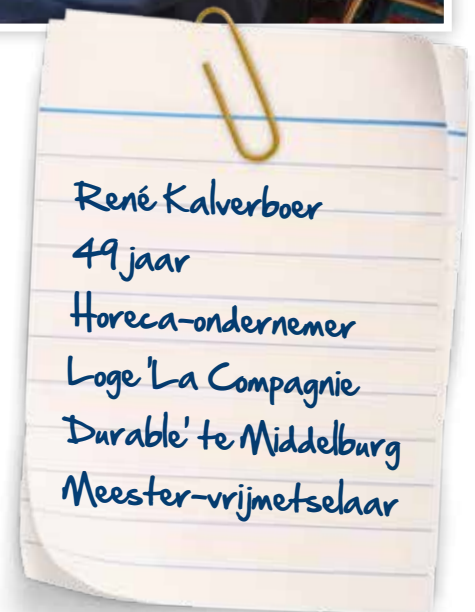 René Kalverboer
49 jaar
Horeca-ondernemer
Loge 'La Compagnie
Durable' te Middelburg
Meester-vrijmetselaar